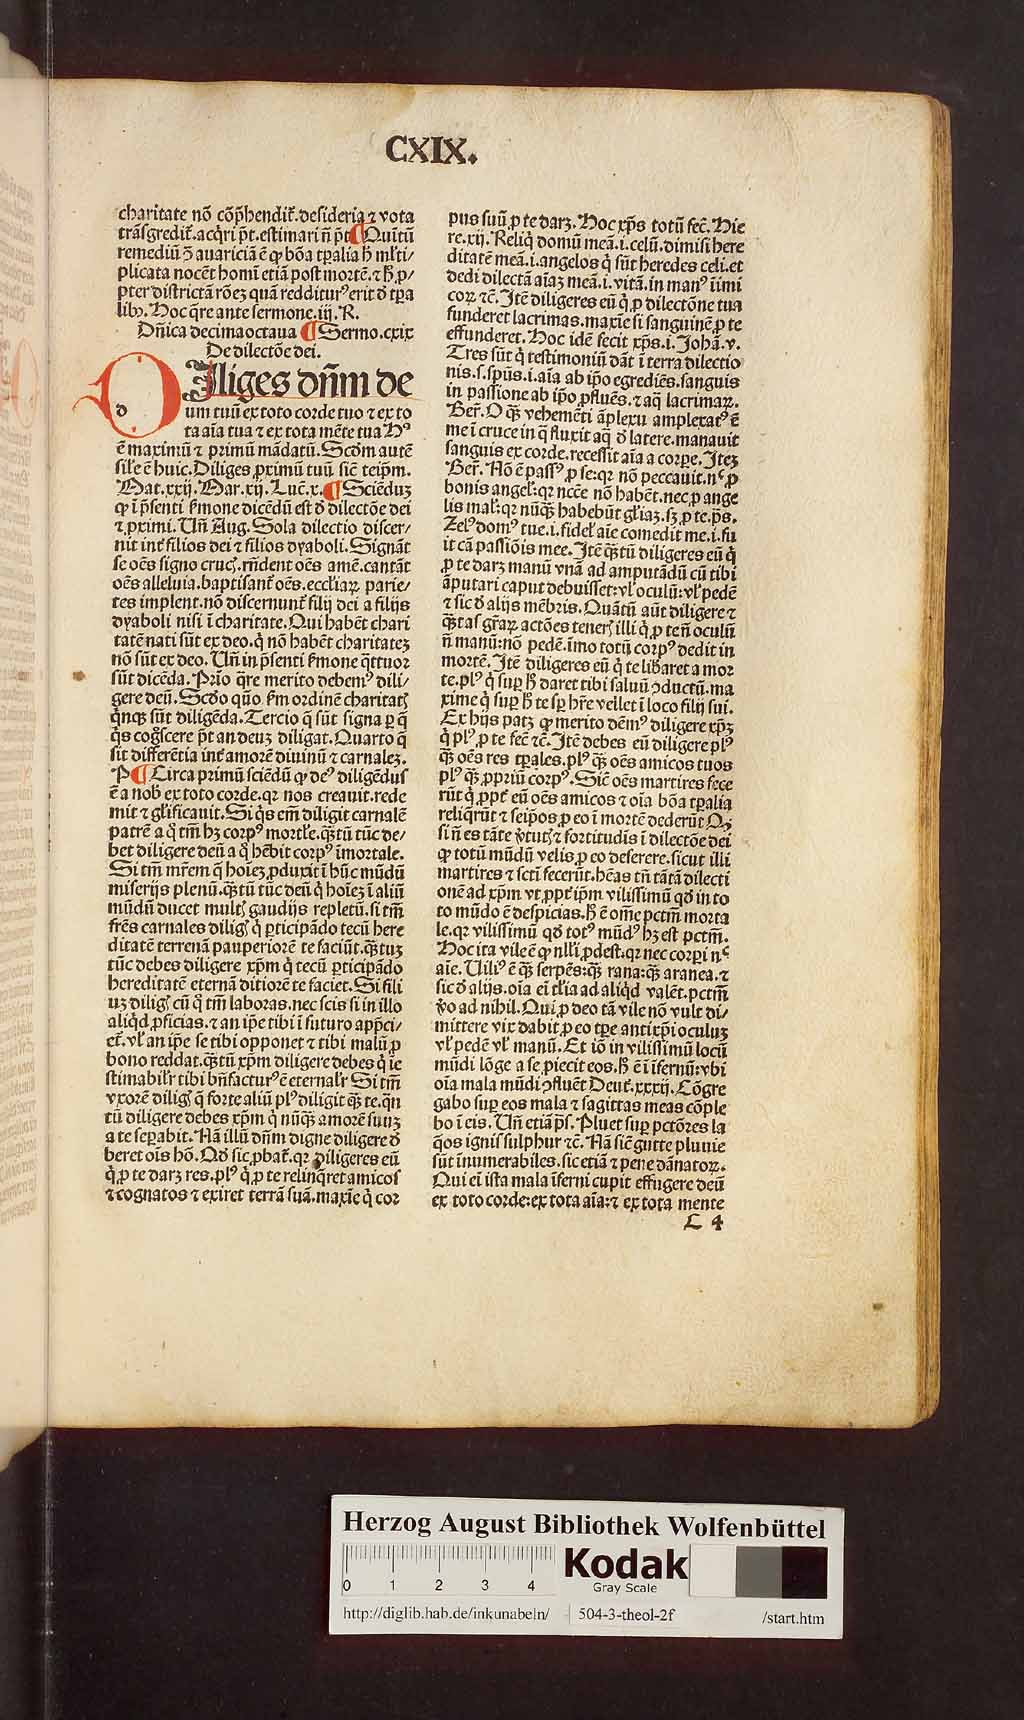 CXIX.
charitate nō cōp̄hendit̄.desideria ⁊ vota
trāsgredit̄.acq̄ri p̄t.estimari n̄ p̄t ¶ Quītū
remediū ↄ̄ auariciā ē ꝙ bōa tꝑalia h̄ ml̄ti/
plicata nocēt homī etiā post mortē.⁊ h̄ ꝓ/
pter districtā rōez quā redditurꝰ erit ꝺ̄ tꝑa
libꝫ. Hoc q̄re ante sermone.iij. R.
Dn̄ica decimaoctaua ¶ Sermo.cxix
De dilectōe dei.
DIliges dn̄m de
um tuū ex toto corde tuo ⁊ ex to
ta aīa tua ⁊ ex tota mēte tua Hꝰ
ē maximū ⁊ primū mādatū. Scd̄m autē
sil̄e ē huic. Diliges ꝓximū tuū sic̄ teip̄m.
Mat.xxij. Mar.xij. Luc̄.x. ¶ Sciēduꝫ
ꝙ ī p̄senti s̄mone dicēdū est ꝺ̄ dilectōe dei
⁊ ꝓximi. Un̄ Aug. Sola dilectio discer/
nit int̄ filios dei ⁊ filios dyaboli. Signāt
se oēs signo crucꝭ. rn̄dent oēs amē.cantāt
oēs alleluia.baptisant̄ oēs.eccl̄iaꝝ parie/
tes implent.nō discernunt̄ filij dei a filijs
dyaboli nisi ī charitate. Qui habēt chari
tatē nati sūt ex deo.q̇ nō habēt charitateꝫ
nō sūt ex deo. Un̄ in p̄senti s̄mone q̄ttuor
sūt dicēda. Prīo q̄re merito debemꝰ dili/
gere deū. Scd̄o quō s̄m ordinē charitatꝭ
q̇nqꝫ sūt diligēda. Tercio q̄ sūt signa ꝑ q̄
q̇s cog̊scere p̄t an deuꝫ diligat. Quarto q̄
sit differētia int̄ amorē diuinū ⁊ carnaleꝫ.
P ¶ Circa primū sciēdū ꝙ deꝰ diligēdus
ē a nob̄ ex toto corde.qꝛ nos creauit.rede
mit ⁊ gl̄ificauit. Si q̇s em̄ diligit carnalē
patrē a q̊ tm̄ hꝫ corpꝰ mortl̄e.q̄stū tūc de/
bet diligere deū a q̊ hēbit corpꝰ īmortale.
Si tm̄ mr̄em q̄ hoīeꝫ ꝓduxit ī hūc mūdū
miserijs plenū.q̄stū tūc deū q̇ hoīeꝫ ī aliū
mūdū ducet multꝭ gaudijs repletū.si tm̄
fr̄es carnales diligꝭ q̇ ꝑticipādo tecū here
ditatē terrenā pauperiorē te faciūt.q̄stuꝫ
tūc debes diligere xp̄m q̇ tecū ꝑticipādo
hereditatē eternā ditiorē te faciet. Si fili
uꝫ diligꝭ cū q̊ tm̄ laboras.nec scis si in illo
aliq̇d ꝓficias.⁊ an ip̄e tibi ī futuro app̄ci/
et̄.vl̄ an ip̄e se tibi opponet ⁊ tibi malū ꝓ
bono reddat.q̄stū xp̄m diligere debes q̇ īe
stimabilr̄ tibi bn̄facturꝰ ē eternalr̄ Si tm̄
vxorē diligꝭ q̄ forte aliū plꝰ diligit q̄ꝫ te.q̄n
tū diligere debes xp̄m q̇ nūq̄ꝫ amorē suuꝫ
a te seꝑabit. Nā illū dn̄m digne diligere ꝺ̄
beret oīs hō. Qd̄ sic ꝓbat̄.qꝛ diligeres eū
q̇ ꝓ te darꝫ res.plꝰ q̇ ꝓ te relinq̄ret amicos
⁊ cognatos ⁊ exiret terrā suā.maxīe q̇ cor
pus suū ꝓ te darꝫ. Hoc xp̄s totū fec̄. Hie
re.xij. Reliq̇ domū meā.i.celū.dimisi here
ditatē meā.i.angelos q̇ sūt heredes celi.et
dedi dilectā aīaꝫ meā.i.vitā.in manꝰ īimi
coꝝ ⁊c̄. Itē diligeres eū q̇ ꝓ dilectōne tua
funderet lacrimas.maxīe si sanguinē ꝓ te
effunderet. Hoc idē fecit xp̄s.i. Johā.v.
Tres sūt q̇ testimoniū dāt ī terra dilectio
nis.s.spūs.i.aīa ab ip̄o egrediēs.sanguis
in passione ab ip̄o ꝓfluēs.⁊ aq̄ lacrimaꝝ.
Ber̄. O q̄ꝫ vehemēti āplexu amplexatꝰ ē
me ī cruce in q̄ fluxit aq̄ ꝺ̄ latere.manauit
sanguis ex corde.recessit aīa a corꝑe. Iteꝫ
Ber̄. Nō ē passꝰ ꝓ se:qꝛ nō peccauit.nc̄ ꝓ
bonis angel̄:qꝛ ncc̄e nō habēt.nec ꝓ ange
lis mal̄:qꝛ nūq̄ꝫ habebūt gl̄iaꝫ.sꝫ ꝓ te.p̄s.
Zelꝰ domꝰ tue.i.fidel̄ aīe comedit me.i.fu
it cā passiōis mee. Itē q̄stū diligeres eū q̇
ꝓ te darꝫ manū vnā ad amputādū cū tibi
āputari caput debuisset:vl̄ oculū:vl̄ pedē
⁊ sic ꝺ̄ alijs mēbris. Quātū aūt diligere ⁊
q̄stas gr̄aꝝ actōes tenerꝭ illi q̇ ꝓ te n̄ oculū
n̄ manū:nō pedē.īmo totū corpꝰ dedit in
mortē. Itē diligeres eū q̇ te libaret a mor
te.plꝰ q̇ suꝑ h̄ daret tibi saluū ↄductū.ma
xime q̇ suꝑ h̄ te sꝑ hr̄e vellet ī loco filij sui.
Ex hijs patꝫ ꝙ merito dēmꝰ diligere xp̄ꝫ
q̇ plꝰ ꝓ te fec̄ ⁊c̄. Itē debes eū diligere plꝰ
q̄ꝫ oēs res tꝑales.plꝰ q̄ꝫ oēs amicos tuos
plꝰ q̄ꝫ ꝓpriū corpꝰ. Sic̄ oēs martires fece
rūt q̇ ꝓpt̄ eū oēs amicos ⁊ oīa bōa tꝑalia
reliq̄rūt ⁊ seip̄os ꝓ eo ī mortē dederūt Qꝫ
si n̄ es tāte v̄tutꝭ ⁊ fortitudis ī dilectōe dei
ꝙ totū mūdū velis ꝓ eo deserere.sicut illi
martires ⁊ sc̄ti fecerūt.hēas tn̄ tātā dilecti
onē ad xp̄m vt ꝓpt̄ ip̄m vilissimū qd̄ in to
to mūdo ē despicias.h̄ ē om̄e pctm̄ morta
le.qꝛ vilissimū qd̄ totꝰ mūdꝰ hꝫ est pctm̄.
Hoc ita vile ē ꝙ nlli̇ ꝓdest.qꝛ nec corpi nc̄
aīe. Uiliꝰ ē q̄ꝫ serpēs:q̄ꝫ rana:q̄ꝫ aranea.⁊
sic ꝺ̄ alijs.oīa ei̇ tl̄ia ad aliq̇d valēt.pctm̄
v̊o ad nihil. Qui ꝓ deo tā vile nō vult di/
mittere vix dabit ꝓ eo tꝑe antixp̄i oculuꝫ
vl̄ pedē vl̄ manū. Et iō in vilissimū locū
mūdi lōge a se ꝓiecit eos.h̄ ē ī īfernū:vbi
oīa mala mūdi ↄfluēt Deut̄.xxxij. Cōgre
gabo suꝑ eos mala ⁊ sagittas meas cōple
bo ī eis. Un̄ etiā p̄s. Pluet suꝑ pctōres la
q̄os ignis sulphur ⁊c̄. Nā sic̄ gutte pluuie
sūt īnumerabiles.sic etiā ⁊ pene dānatoꝝ.
Qui ei̇ ista mala īferni cupit effugere deū
ex toto corde:ex tota aīa:⁊ ex tota mente
L 4
Herzog August Bibliothek Wolfenbüttel
0 1 2 3 4
Kodak
Gray Scale
http://diglib.hab.de/inkunabeln/ 504-3-theol-2f /start.htm